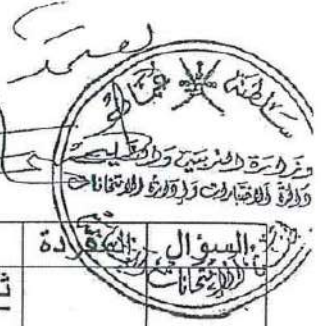 يعتمد
سلطنة عمان
وزارة التربية والتعليم
دائرة الاختبارات وإدارة الامتحانات
السؤال
المفردة